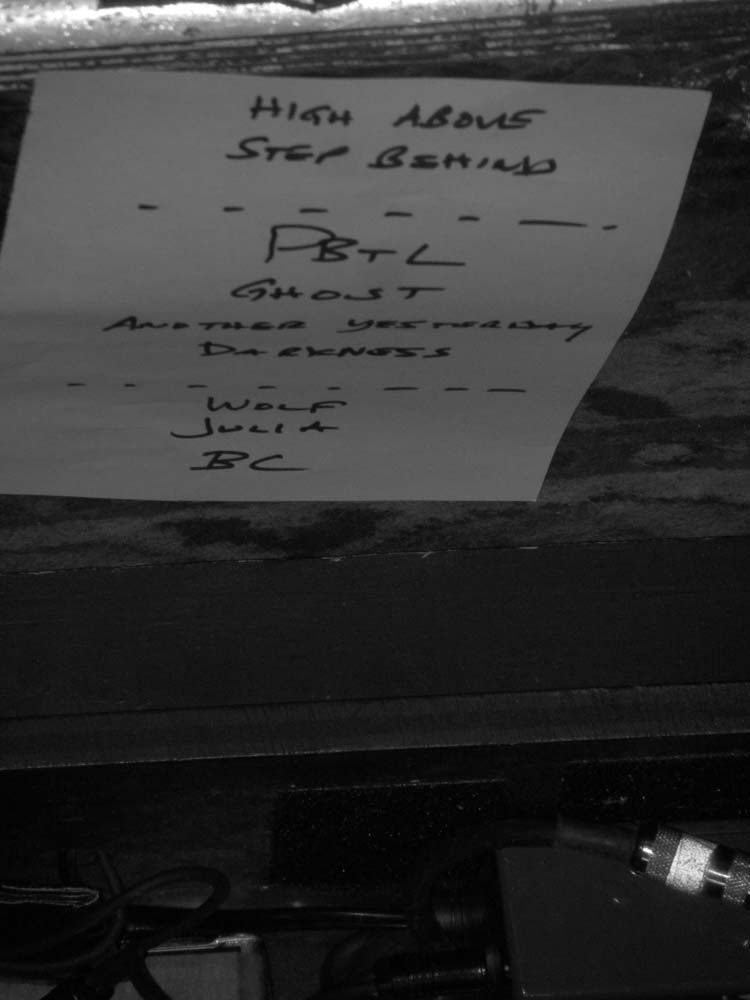 HIGH ABOVE
STEP BEHIND
- - - - - - .
PBTL
GHOST
ANOTHER YESTERDAY
DARKNESS
- - - - - - - -
WOLF
JULIA
BC